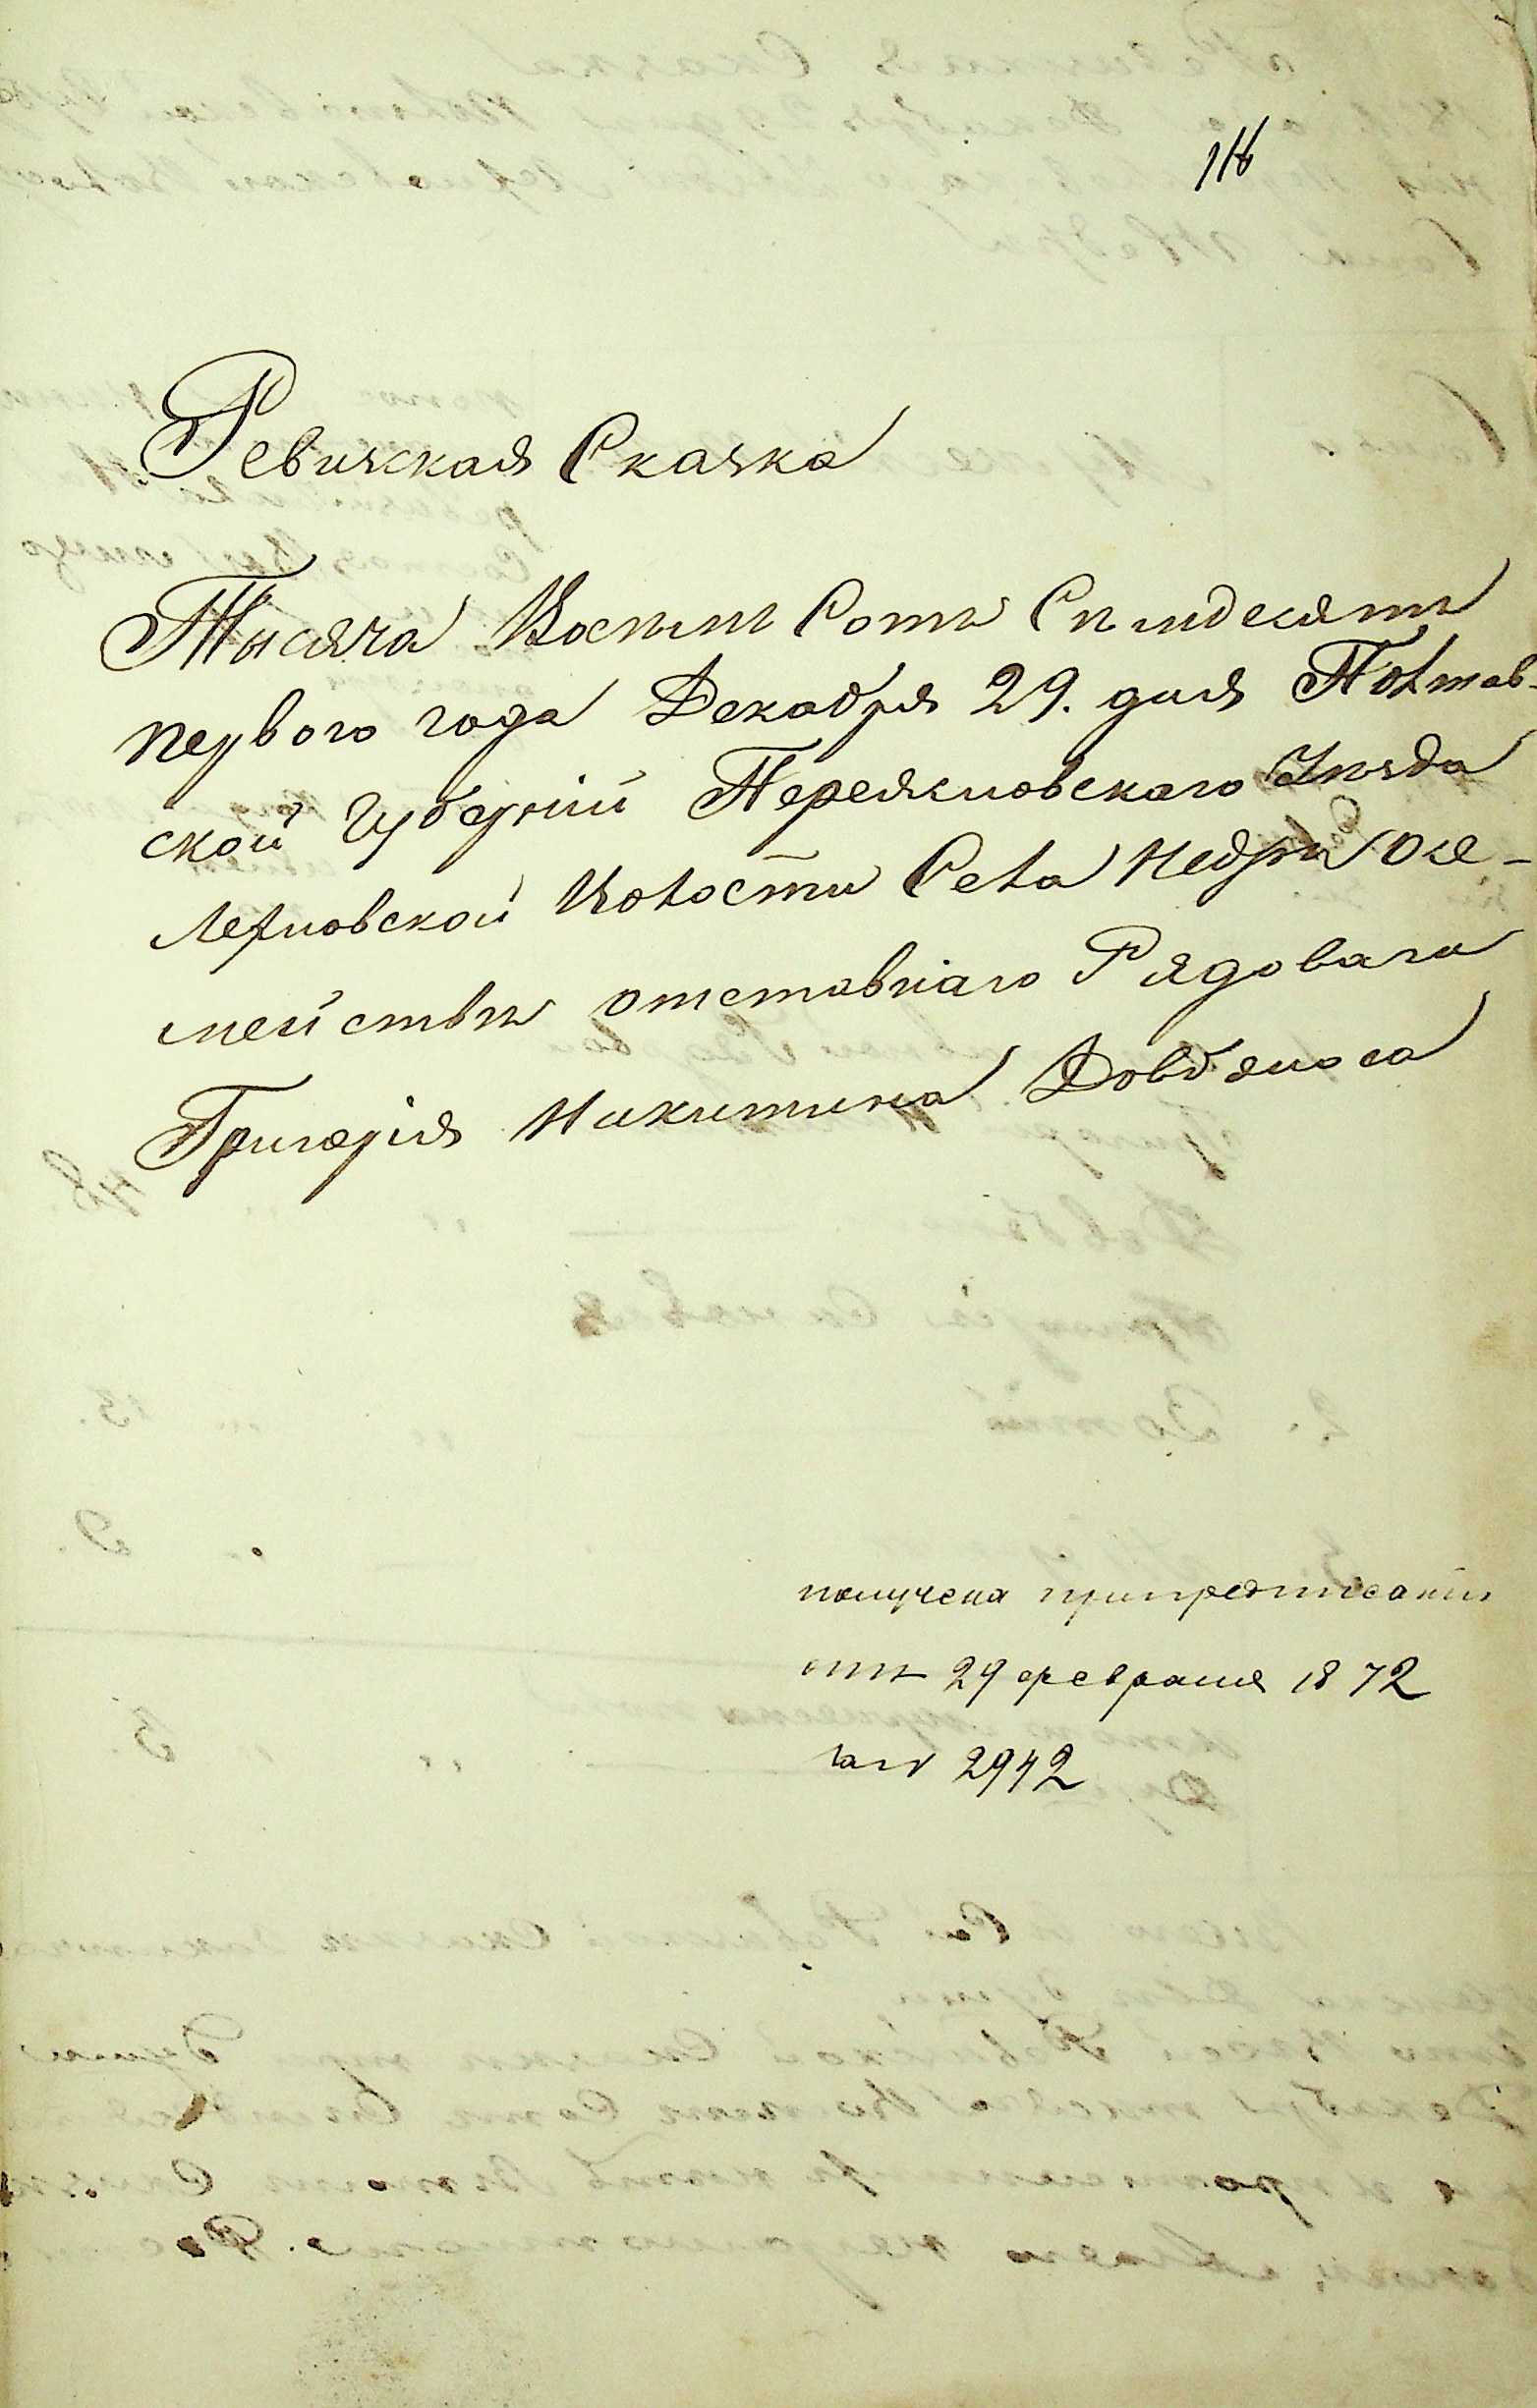 116
Ревижская Скажка
Тысяча Восѣмъ Сотъ Сѣмдесятъ
первого года Декабря 29. дня Полтав-
ской Губерніи Переяжловскаго Уѣзда
Лехновской Волости Села Недры Осе-
мействѣ отставнаго Рядоваго
Григорія Никитина Довбяноса
получена припредписаніи
отъ 29 февраля 1872
2942